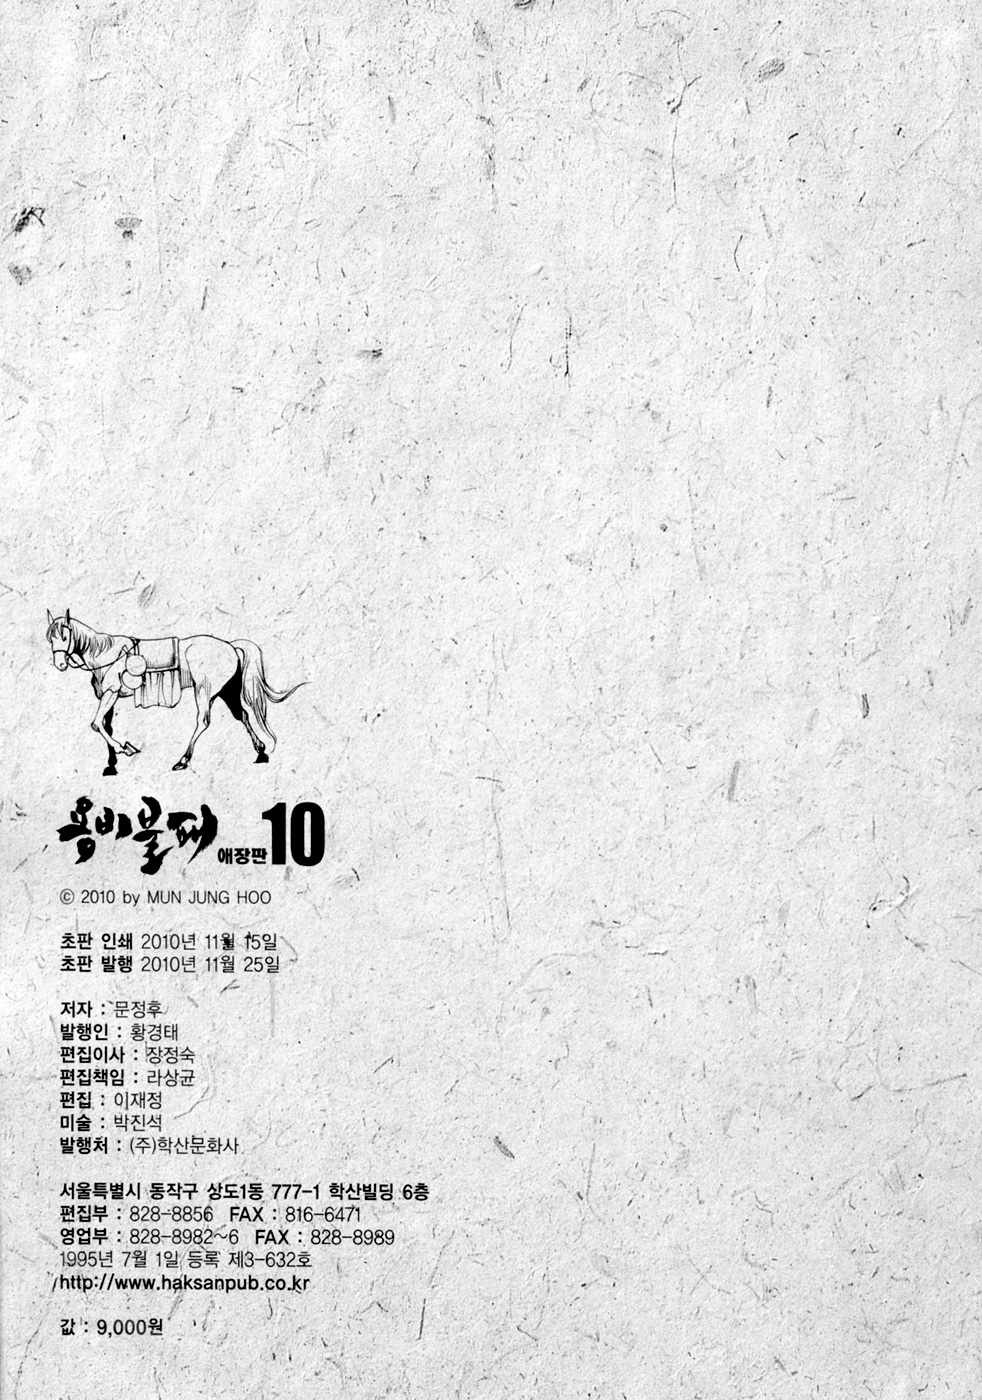 용비불패 애장판 10
© 2010 by MUN JUNG HOO
초판 인쇄 2010년 11월 15일
초판 발행 2010년 11월 25일
저자 : 문정후
발행인 : 황경태
편집이사 : 장정숙
편집책임 : 라상균
편집 : 이재정
미술 : 박진석
발행처 : (주)학산문화사
서울특별시 동작구 상도1동 777-1 학산빌딩 6층
편집부 : 828-8856 FAX : 816-6471
영업부 : 828-8982~6 FAX : 828-8989
1995년 7월 1일 등록 제3-632호
http://www.haksanpub.co.kr
값 : 9,000원